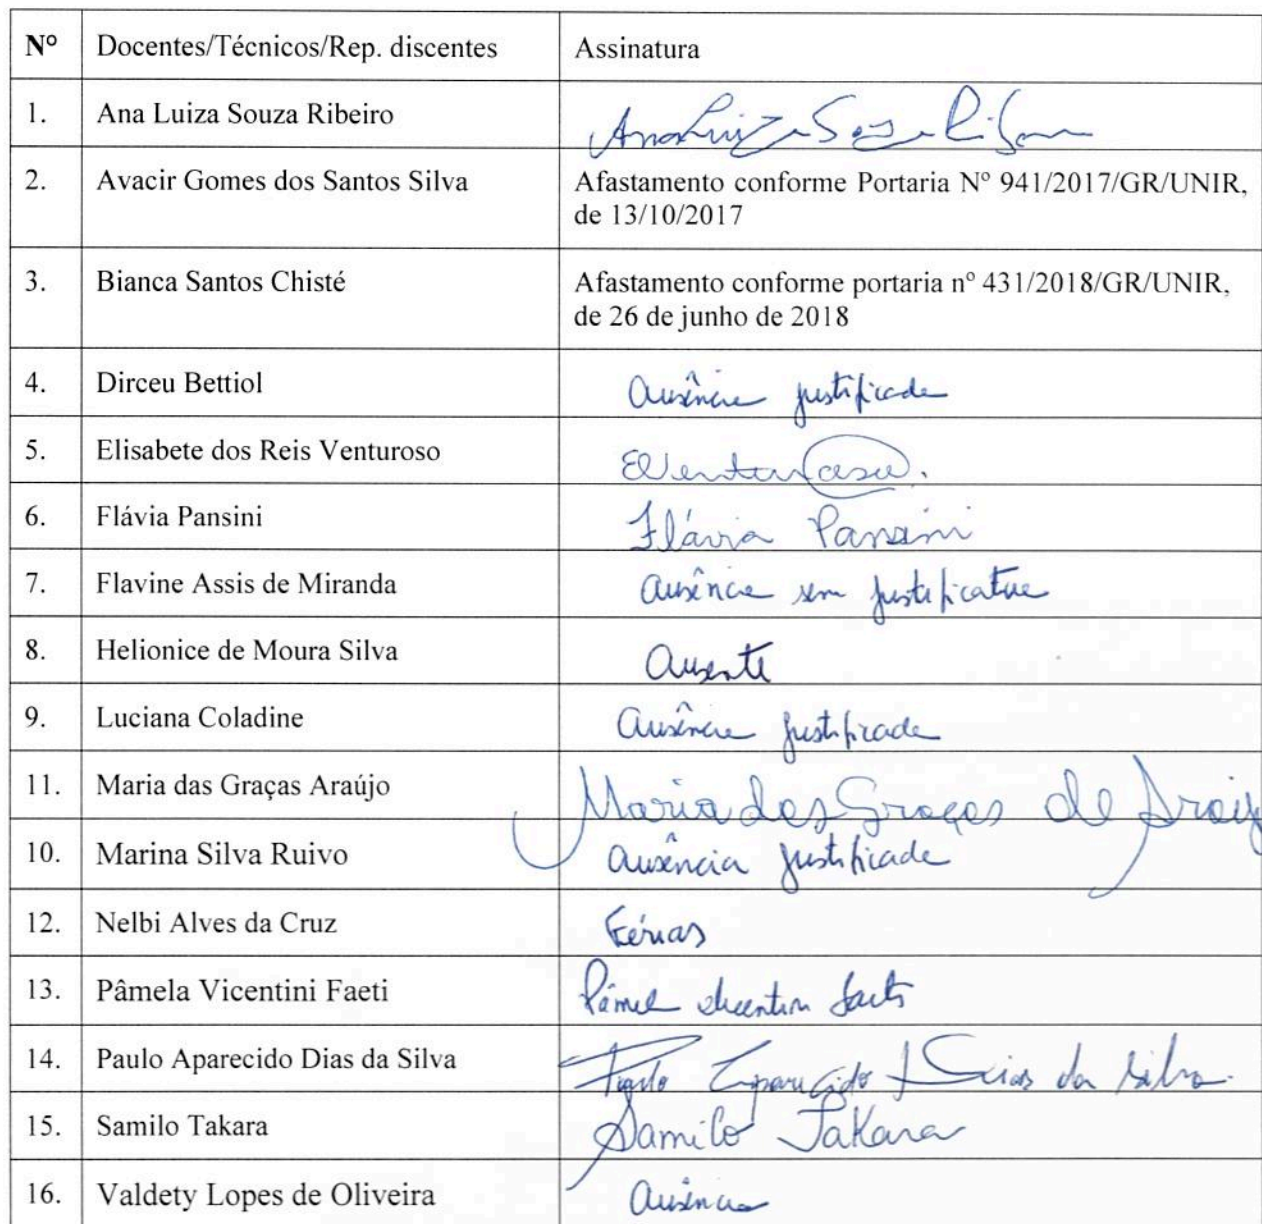 Nº Docentes/Técnicos/Rep. discentes Assinatura
1. Ana Luiza Souza Ribeiro Ana Luiza Souza Ribeiro
2. Avacir Gomes dos Santos Silva Afastamento conforme Portaria Nº 941/2017/GR/UNIR,
de 13/10/2017
3. Bianca Santos Chisté Afastamento conforme portaria nº 431/2018/GR/UNIR,
de 26 de junho de 2018
4. Dirceu Bettiol Ausência justificada
5. Elisabete dos Reis Venturoso EVenturoso.
6. Flávia Pansini Flávia Pansini
7. Flavine Assis de Miranda Ausência sem justificativa
8. Helionice de Moura Silva Ausente
9. Luciana Coladine Ausência justificada
11. Maria das Graças Araújo Maria das Graças de Araúj
10. Marina Silva Ruivo Ausência justificada
12. Nelbi Alves da Cruz Férias
13. Pâmela Vicentini Faeti Pâmela Vicentini Faeti
14. Paulo Aparecido Dias da Silva Paulo Aparecido Dias da Silva
15. Samilo Takara Samilo Takara
16. Valdety Lopes de Oliveira Ausência